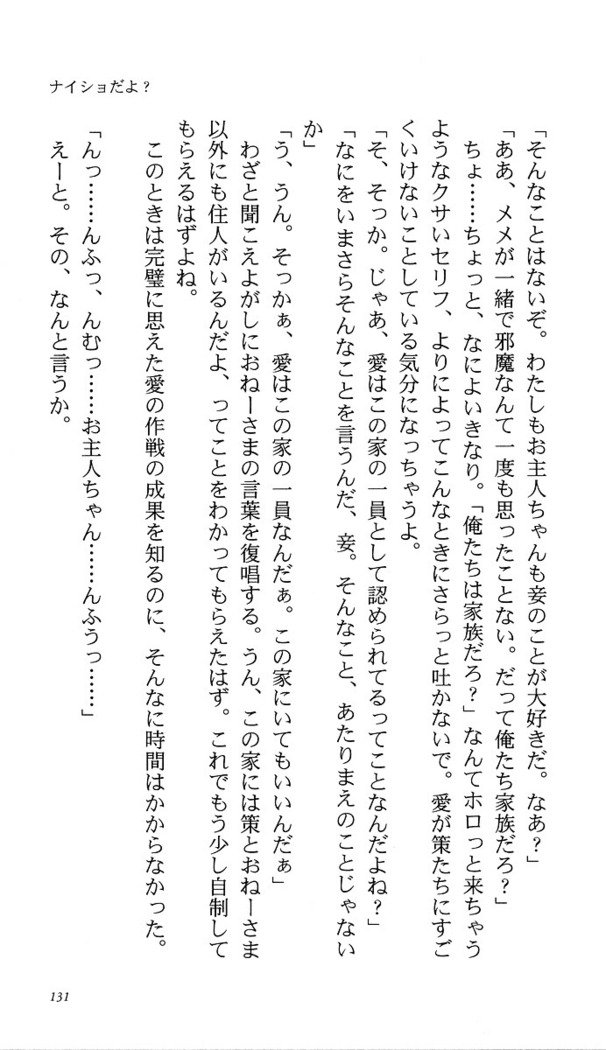 ナイショだよ?
「そんなことはないぞ。わたしもお主人ちゃんも妾のことが大好きだ。なあ?」
「ああ、メメが一緒で邪魔なんて一度も思ったことない。だって俺たち家族だろ?」
ちょ……ちょっと、なによいきなり。「俺たちは家族だろ?」なんてホロっと来ちゃう
ようなクサいセリフ、よりによってこんなときにさらっと吐かないで。愛が策たちにすご
くいけないことしている気分になっちゃうよ。
「そ、そっか。じゃあ、愛はこの家の一員として認められてるってことなんだよね?」
「なにをいまさらそんなことを言うんだ、妾。そんなこと、あたりまえのことじゃない
か」
「う、うん。そっかぁ、愛はこの家の一員なんだぁ。この家にいてもいいんだぁ」
わざと聞こえよがしにおねーさまの言葉を復唱する。うん、この家には策とおねーさま
以外にも住人がいるんだよ、ってことをわかってもらえたはず。これでもう少し自制して
もらえるはずよね。
このときは完璧に思えた愛の作戦の成果を知るのに、そんなに時間はかからなかった。
「んっ……んふっ、んむっ……お主人ちゃん……んふうっ……」
えーと。その、なんと言うか。
131